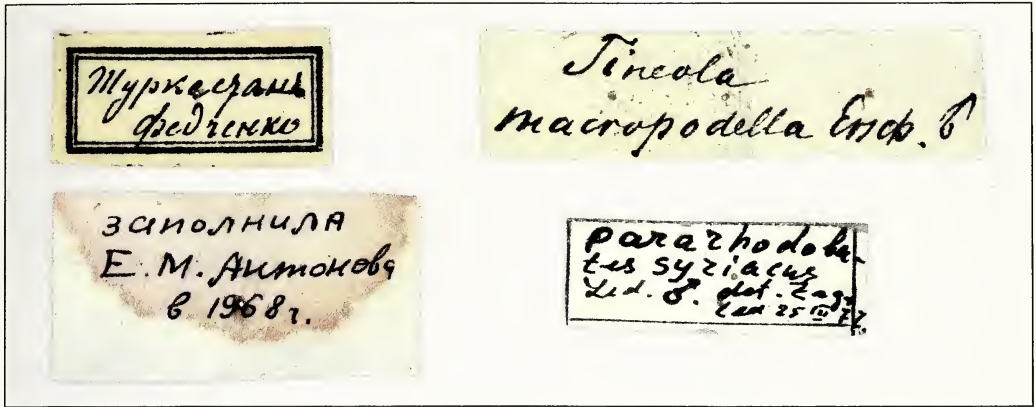 Туркестанъ
Федченко
Tineola
macropodella Ersch. ♂
заполнила
Е. М. Антонова
в 1968 г.
Pararhodoba-
tes syriacus
Led. ♂. det. Zagu
Led 25 III 72